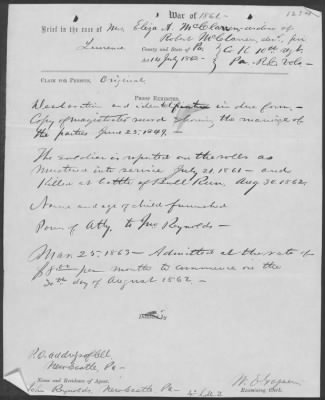 War of 1861
Brief in the case of Mrs Eliza A. McClaren widow of
Robert McClaren, dec'd, priv
Lawrence County and State of Pa. Co. H. 10th Regt
Act 14 July 1862 Pa. R.C. Vols
CLAIM FOR PENSION. Original
PROOF EXHIBITED.
Declaration and identification in due form.
Copy of magistrates record showing the marriage of
the parties June 25, 1849.
The soldier is reported on the rolls as
mustered into service July 21, 1861 and
killed at battle of Bull Run, Aug 30, 1862
Name and age of child furnished
Power of Atty. to Jno Reynolds
Mar. 25, 1863 Admitted at the rate of
$8 per month to commence on the
30th day of August 1862
P.O. address of Clt
New Castle, Pa
Name and Residence of Agent.
John Reynolds, New Castle Pa
Examining Clerk.